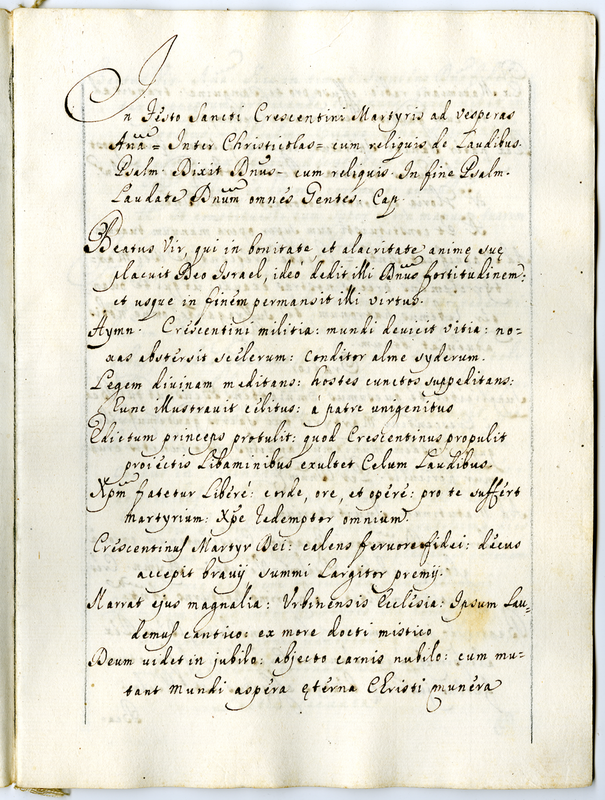 In Festo Sancti Crescentini Martyris ad vesperas
Anã = Inter Christicolas = cum reliquis de Laudibus.
Psalm. Dixit Dnus - cum reliquis. In fine Psalm.
Laudate Dnum omnes Gentes. Cap.
Beatus Vir, qui in bonitate, et alacritate animę suę
placuit Deo Israel, ideó dedit illi Dnus fortitudinem:
et usque in finem permansit illi virtus.
Hymn. Crescentini militia: mundi devicit vitia: no=
xas abstersit scelerum: Conditor alme syderum.
Legem divinam meditans: hostes cunctos suppeditans:
Hunc illustravit cęlitus: á patre unigenitus
Edictum princeps protulit: quod Crescentinus propulit
proiectis Libaminibus exultet Celum Laudibus.
Xpm fatetur Liberé: corde, ore, et opere: pro te suffert
martyrium: Xpe Redemptor omnium.
Crescentinus Martyr Dei: calens fervore fidei: decus
accepit bravij summi Largitor premij.
Narrat ejus magnalia: Urbinensis Ecclesia: Ipsum Lau=
demus cantico: ex more docti mistico
Deum videt in jubilo: abjecto carnis nubilo: cum mu=
tant mundi aspera ęterna Christi munera